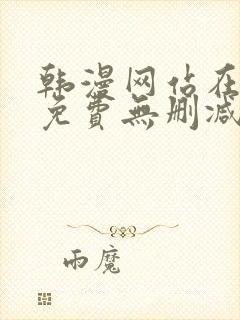 韩漫网站在
免費無刪减
雨魔